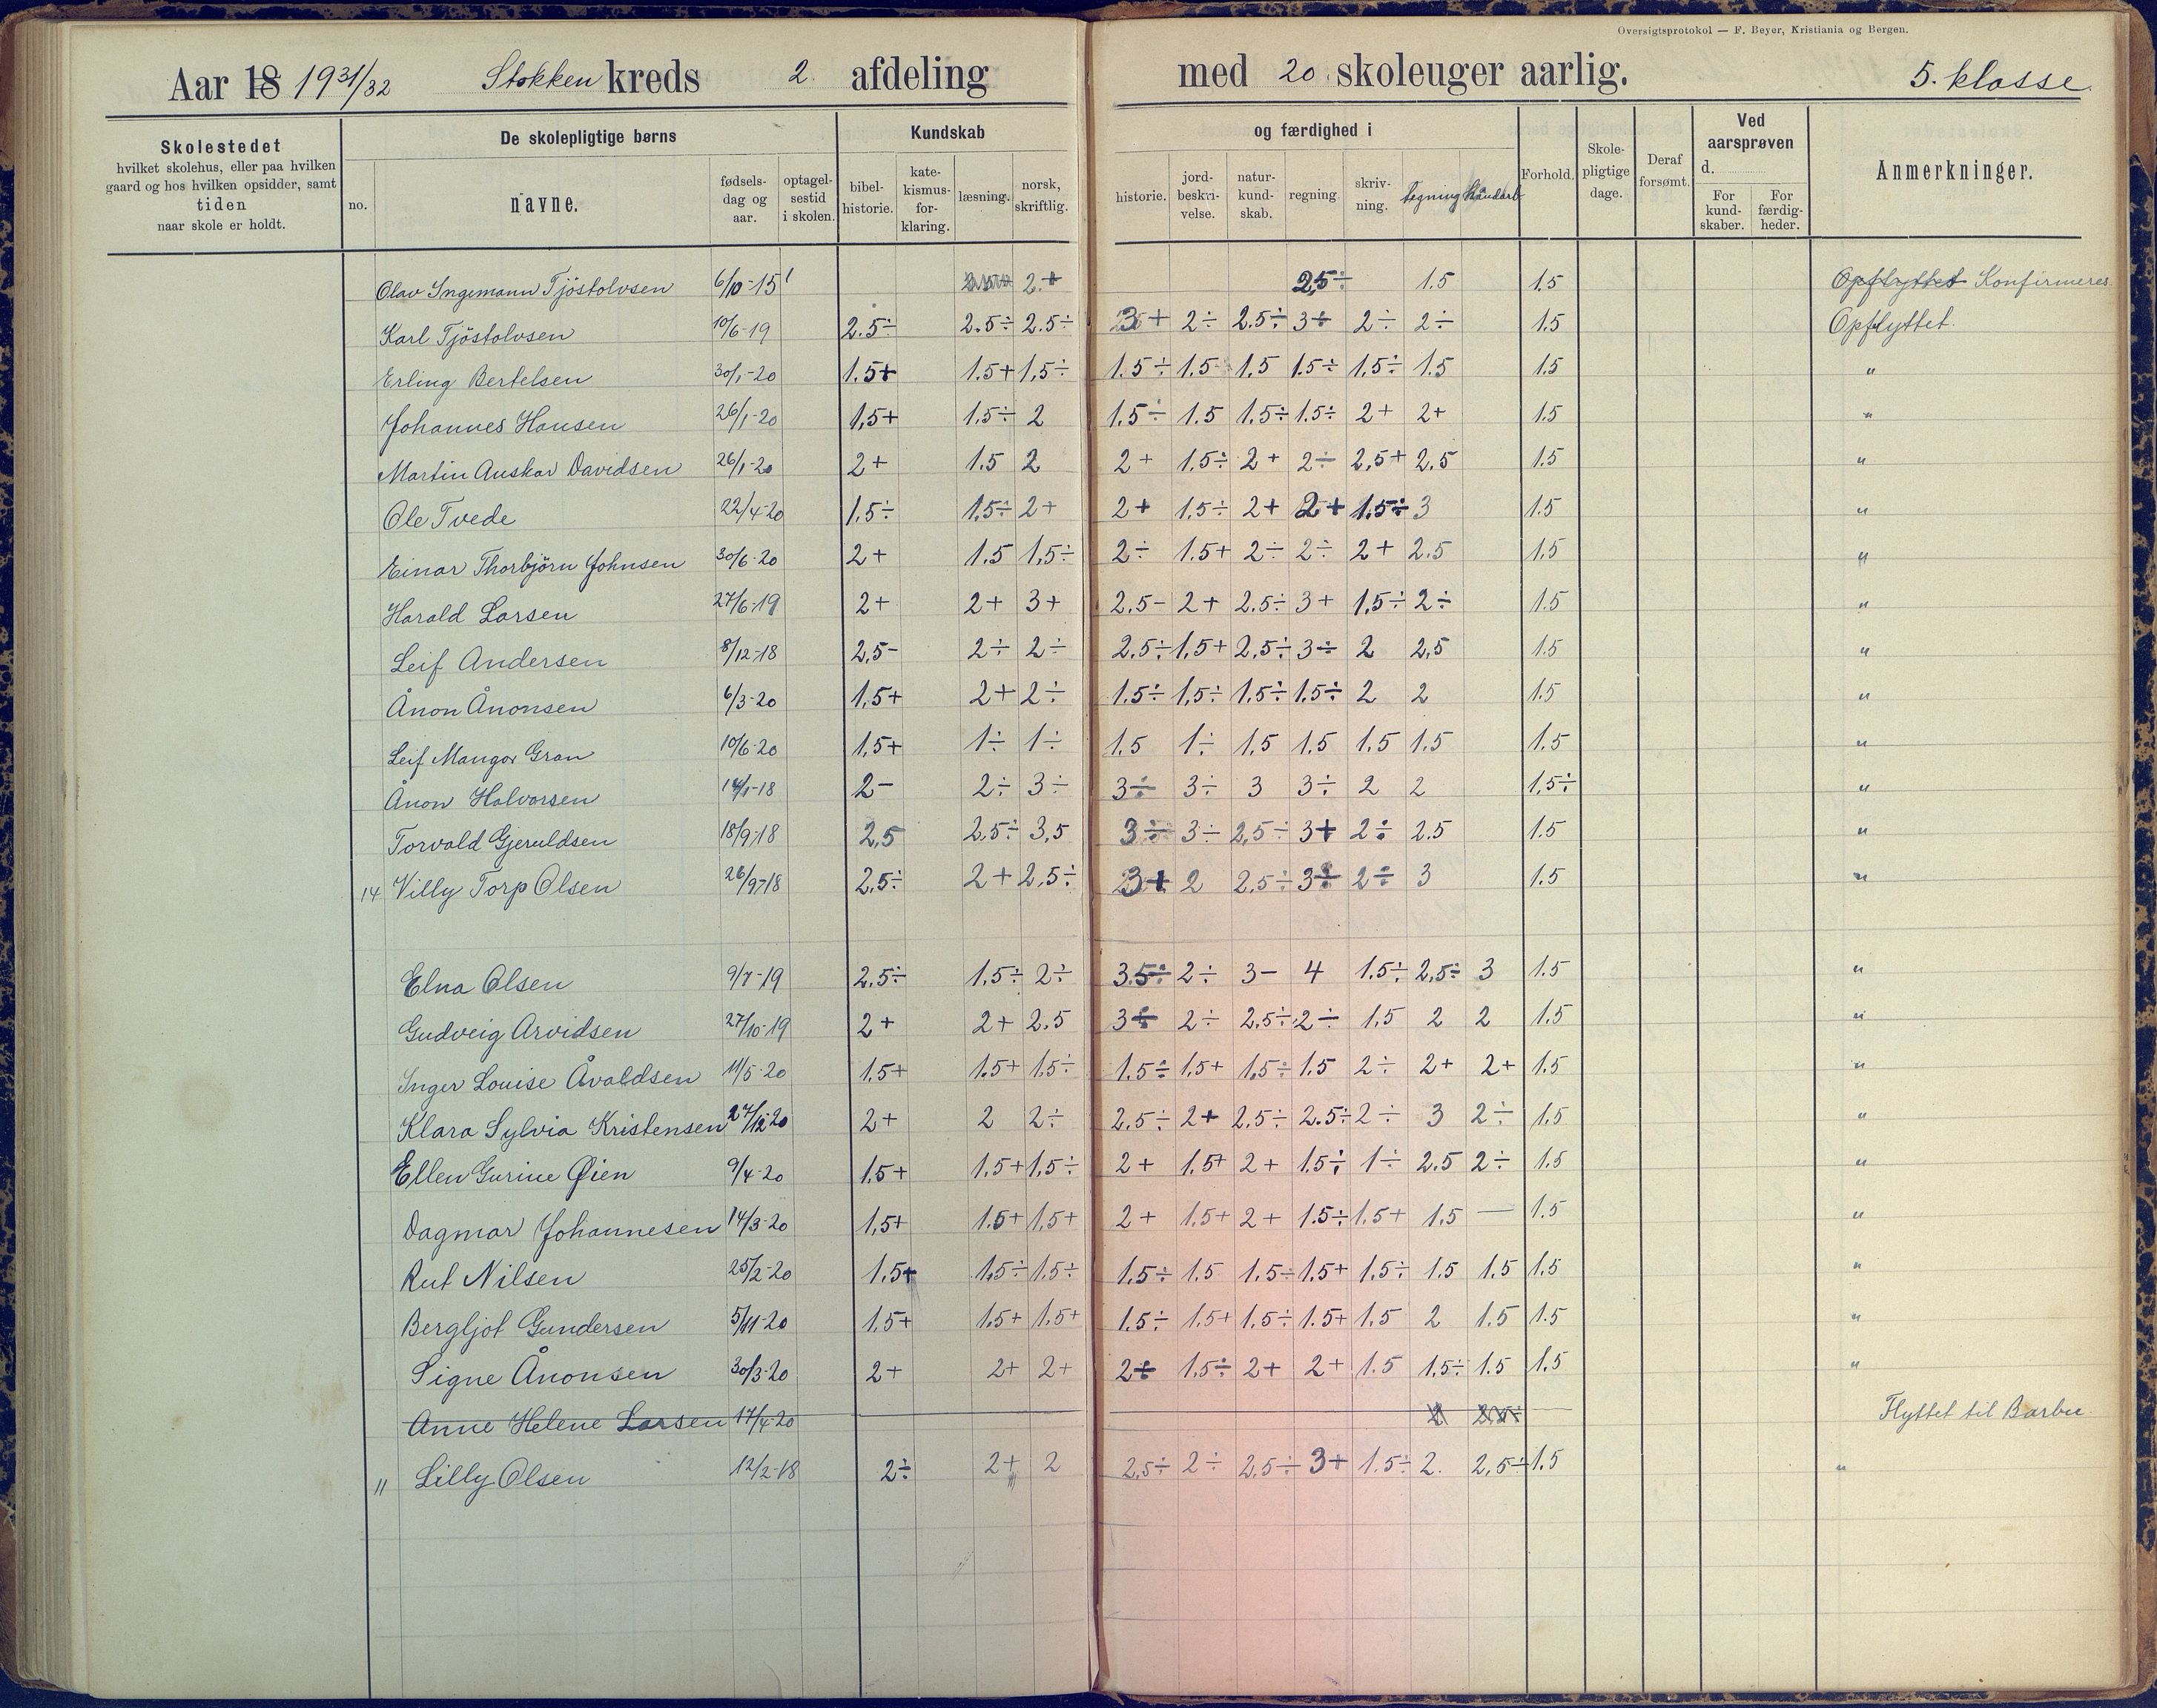 Oversigtsprotokol — F. Beyer, Kristiania og Bergen.
Aar 18 1931/32 Stokken kreds 2. afdeling med 20 skoleuger aarlig. 5. klasse.
Skolestedet
hvilket skolehus, eller paa hvilken
gaard og hos hvilken opsidder, samt
tiden
naar skole er holdt.
De skolepligtige børns
no.
navne.
fødsels-
dag og
aar.
optagel-
sestid
i skolen.
Kundskab
bibel-
historie.
kate-
kismus-
for-
klaring.
læsning.
norsk,
skriftlig.
og færdighed i
historie.
jord-
beskri-
velse.
natur-
kund-
skab.
regning
skriv-
ning.
tegning
Håndarb
Forhold.
Skole-
pligtige
dage.
Deraf
forsømt.
Ved
aarsprøven
d.
For
kund-
skaber.
For
færdig-
heder.
Anmerkninger.
Olav Ingemann Tjöstolvsen 6/10-15 2.+ 2,5÷ 1.5 1.5 Opflyttet Konfirmeres
Karl Tjöstolvsen 10/6-19 2.5÷ 2.5÷ 2.5÷ 3+ 2÷ 2.5÷ 3+ 2÷ 2÷ 1.5 Opflyttet.
Erling Bertelsen 30/1-20 1.5+ 1.5+ 1,5÷ 1.5÷ 1.5 1.5 1.5÷ 1.5÷ 1.5 1.5 "
Johannes Hansen 26/1-20 1,5+ 1.5÷ 2 1.5÷ 1.5 1.5÷ 1.5÷ 2+ 2+ 1.5 "
Martin Auskar Davidsen 26/1-20 2+ 1.5 2 2+ 1.5÷ 2+ 2÷ 2,5+ 2.5 1.5 "
Ole Tvede 22/4-20 1.5÷ 1.5÷ 2+ 2+ 1.5÷ 2+ 2+ 1.5÷ 3 1.5 "
Einar Thorbjörn Johnsen 30/6-20 2+ 1.5 1,5÷ 2÷ 1.5+ 2÷ 2÷ 2+ 2.5 1.5 "
Harald Larsen 27/6-19 2+ 2+ 3+ 2.5- 2+ 2.5÷ 3+ 1.5÷ 2÷ 1.5 "
Leif Andersen 8/12-18 2,5- 2÷ 2÷ 2.5÷ 1,5+ 2,5÷ 3÷ 2 2,5 1.5 "
Ånon Ånonsen 6/3-20 1,5+ 2+ 2÷ 1.5÷ 1,5÷ 1,5÷ 1.5÷ 2 2 1.5 "
Leif Mangor Gran 10/6-20 1,5+ 1÷ 1÷ 1.5 1÷ 1.5 1.5 1.5 1.5 1.5 "
Ånon Halvorsen 14/1-18 2- 2÷ 3÷ 3÷ 3÷ 3 3÷ 2 2 1,5÷ "
Torvald Gjeruldsen 18/9-18 2,5 2.5÷ 3,5 3÷ 3÷ 2,5÷ 3+ 2÷ 2.5 1.5 "
14 Villy Torp Olsen 26/9-18 2,5÷ 2+ 2,5÷ 3+ 2 2.5÷ 3÷ 2÷ 3 1.5 "
Elna Olsen 9/7-19 2.5÷ 1.5÷ 2÷ 3.5÷ 2÷ 3- 4 1.5÷ 2,5÷ 3 1.5 "
Gudveig Arvidsen 27/10-19 2+ 2+ 2.5 3÷ 2÷ 2,5÷ 2÷ 1,5 2 2 1.5 "
Inger Louise Åvaldsen 11/5-20 1.5+ 1.5+ 1.5÷ 1.5÷ 1.5+ 1,5÷ 1.5 2÷ 2+ 2+ 1.5 "
Klara Sylvia Kristensen 27/12-20 2+ 2 2÷ 2.5÷ 2+ 2,5÷ 2.5÷ 2÷ 3 2÷ 1.5 "
Ellen Gurine Øien 9/4-20 1.5+ 1.5+ 1,5÷ 2+ 1.5+ 2+ 1.5÷ 1÷ 2.5 2÷ 1.5 "
Dagmar Johannesen 14/3-20 1,5+ 1.5+ 1,5+ 2+ 1.5+ 2+ 1.5÷ 1.5+ 1.5 — 1.5 "
Rut Nilsen 25/2-20 1.5+ 1.5÷ 1.5÷ 1.5÷ 1.5 1.5÷ 1.5+ 1.5÷ 1.5 1.5 1.5 "
Bergljot Gundersen 5/11-20 1.5+ 1.5+ 1.5+ 1.5÷ 1.5+ 1.5÷ 1.5+ 1.5 2 1.5 1.5 "
Signe Ånonsen 30/3-20 2+ 2+ 2+ 2+ 1.5÷ 2+ 2+ 1.5 1.5÷ 1.5 1.5 "
Anne Helene Larsen 17/4-20 Flyttet til Barbu.
11 Lilly Olsen 12/2-18 2÷ 2+ 2 2,5÷ 2÷ 2,5÷ 3+ 1.5÷ 2. 2,5÷ 1.5 "